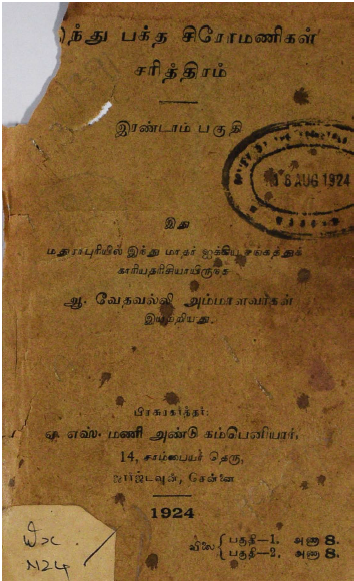 ந்து பக்த சிரோமணிகள்
சரித்திரம்
இரண்டாம் பகுதி
18 AUG 1924
இது
மதுராபுரியில் இந்து மாதர் ஐக்கிய சங்கத்துக்
காரியதரிசியாயிருந்த
ஆ. வேதவல்லி அம்மாளவர்கள்
இயற்றியது.
பிரசுரகர்த்தர்:
எஸ். மணி அண்டு கம்பெனியார்,
14, சாம்பையர் தெரு,
ஜார்ஜ்டவுன், சென்னை
1924
விலை பகுதி—1. அணா 8.
பகுதி—2. அணா 8.
N24